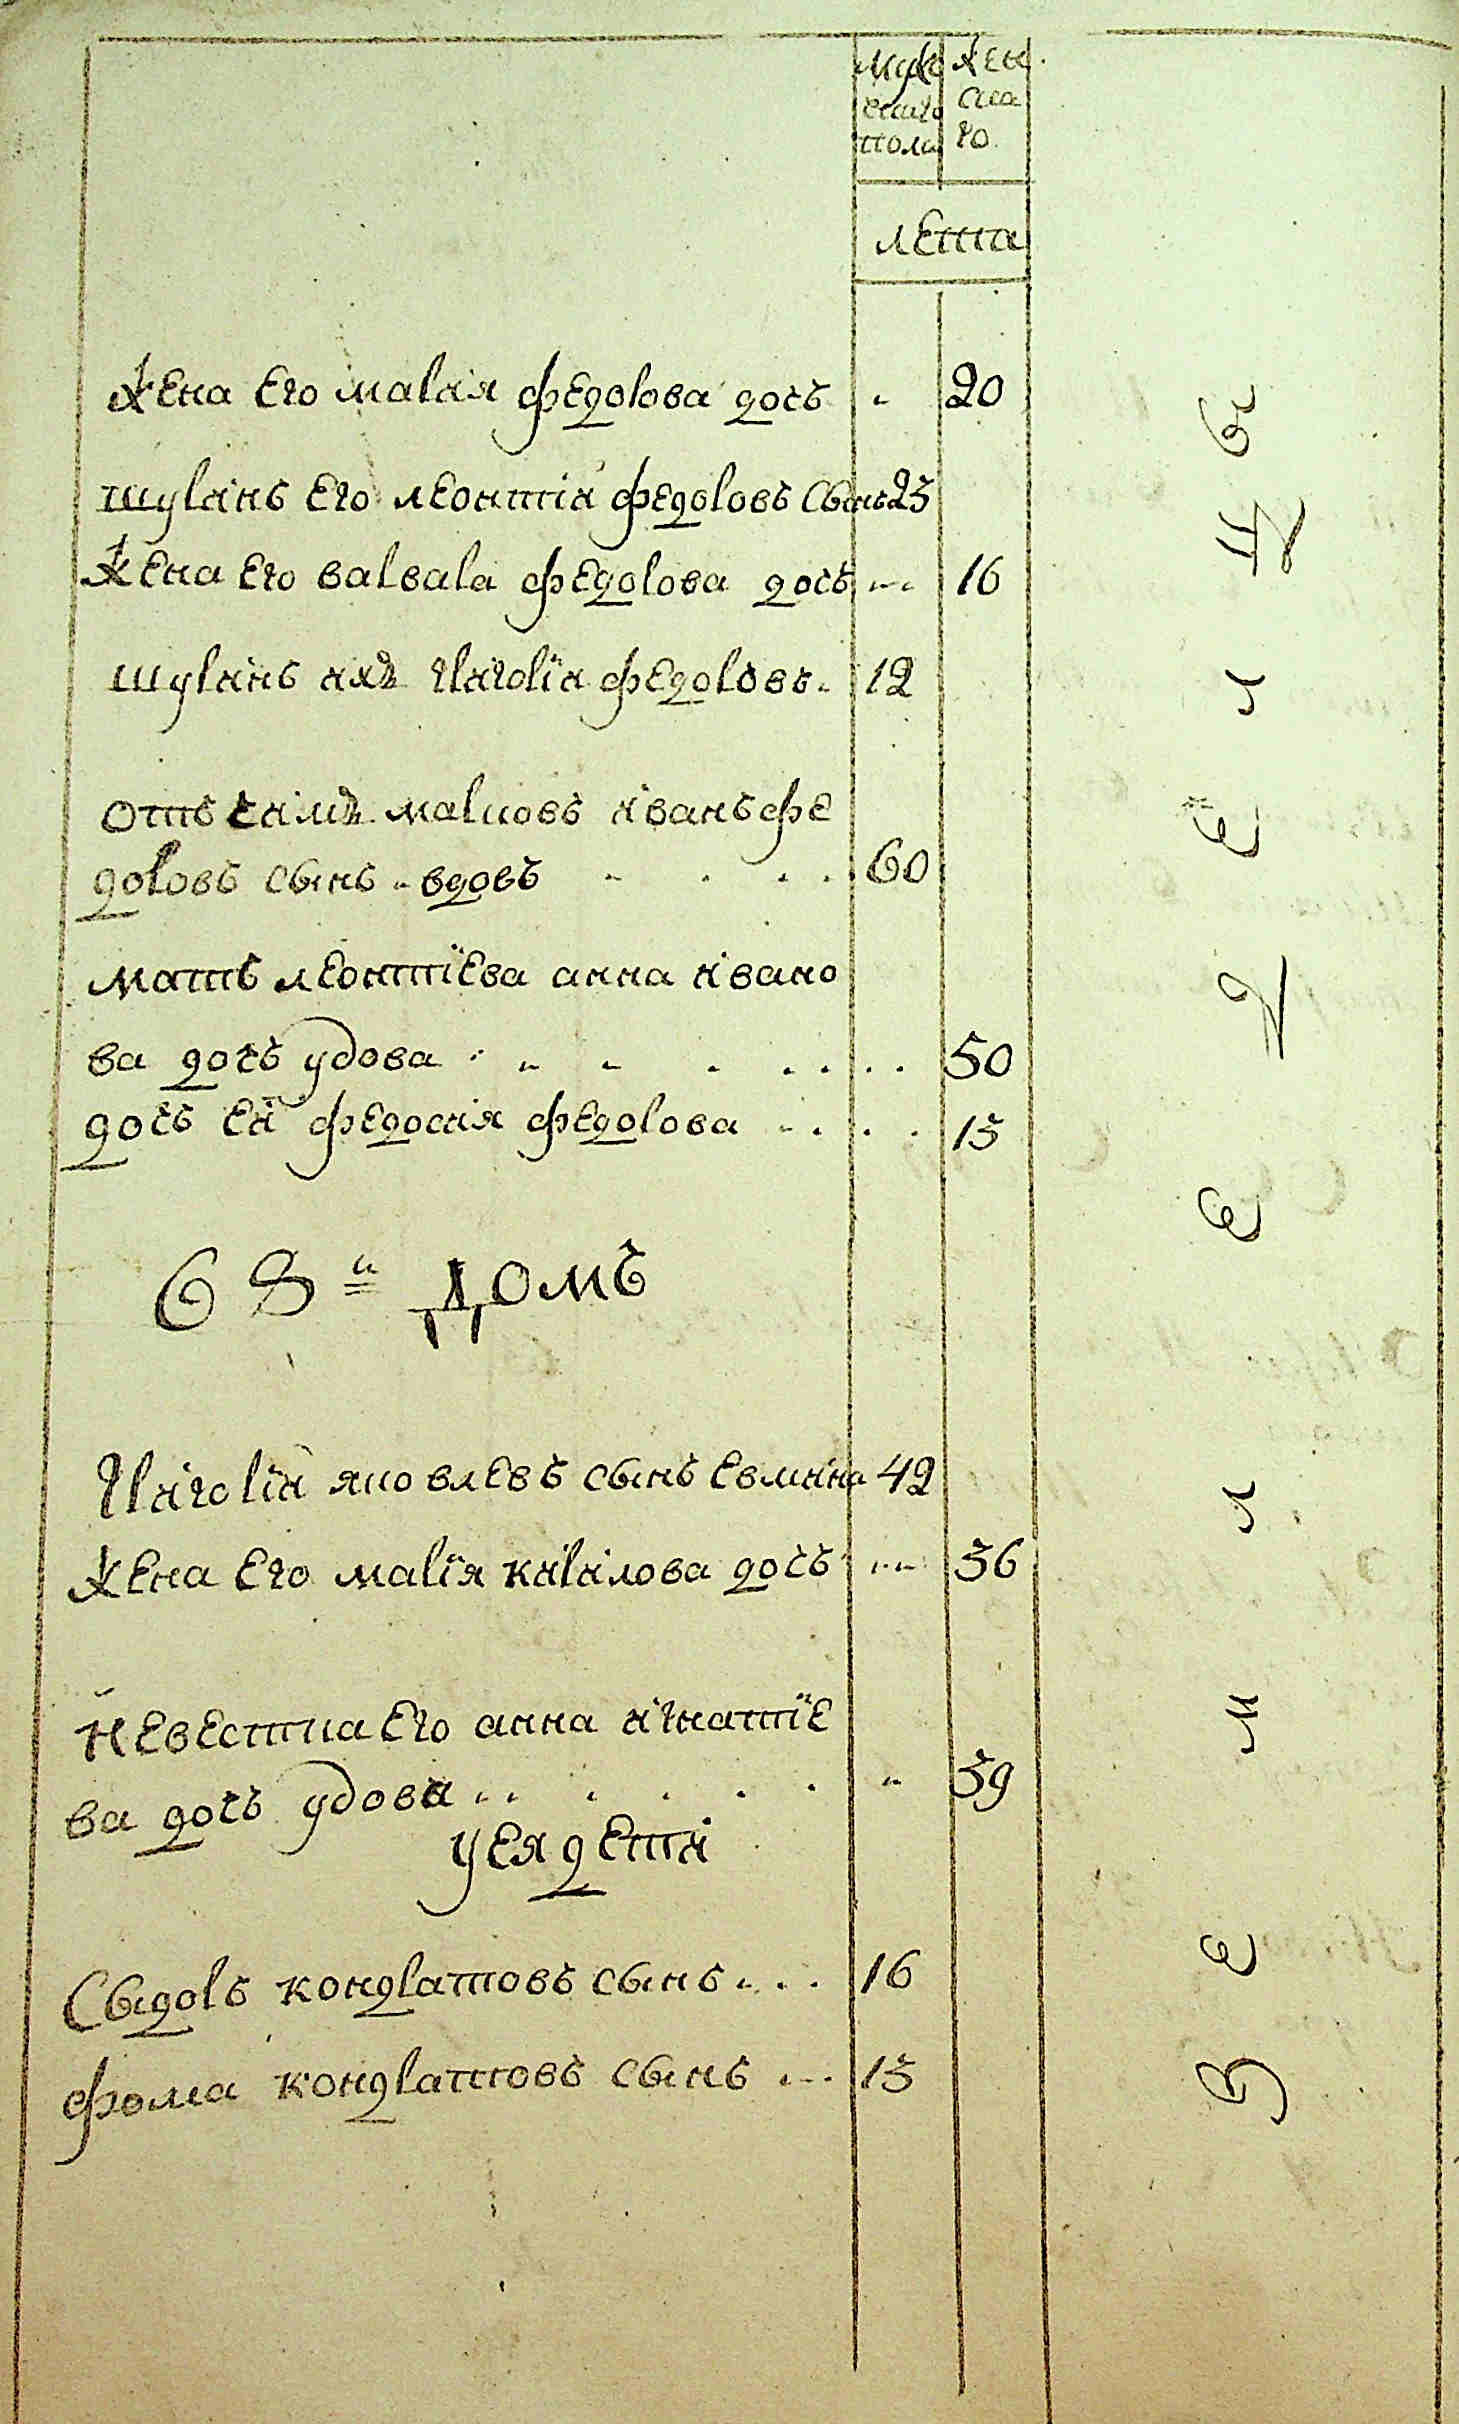 Муже
скаго
пола
жен
ска
го.
лета
жена его мария федорова дочь 20
шуринъ его леонтiи федоровъ сынъ 25
жена его варвара федорова дочь 16
шуринъ ихъ григорiи федоровъ 12
отецъ
марковъ иванъ фе
доровъ сынъ вдовъ 60
мать леонтïева анна ивано
ва дочь удова 50
дочь еи федосия федорова 15
68 и домъ
григорiи яковлевъ сынъ 42
жена его марiя кирилова дочь 36
невестка его анна игнатïе
ва дочь удова 39
у ея дети
сыдоръ кондратовъ сынъ 16
фома кондратовъ сынъ 15
земледелцы